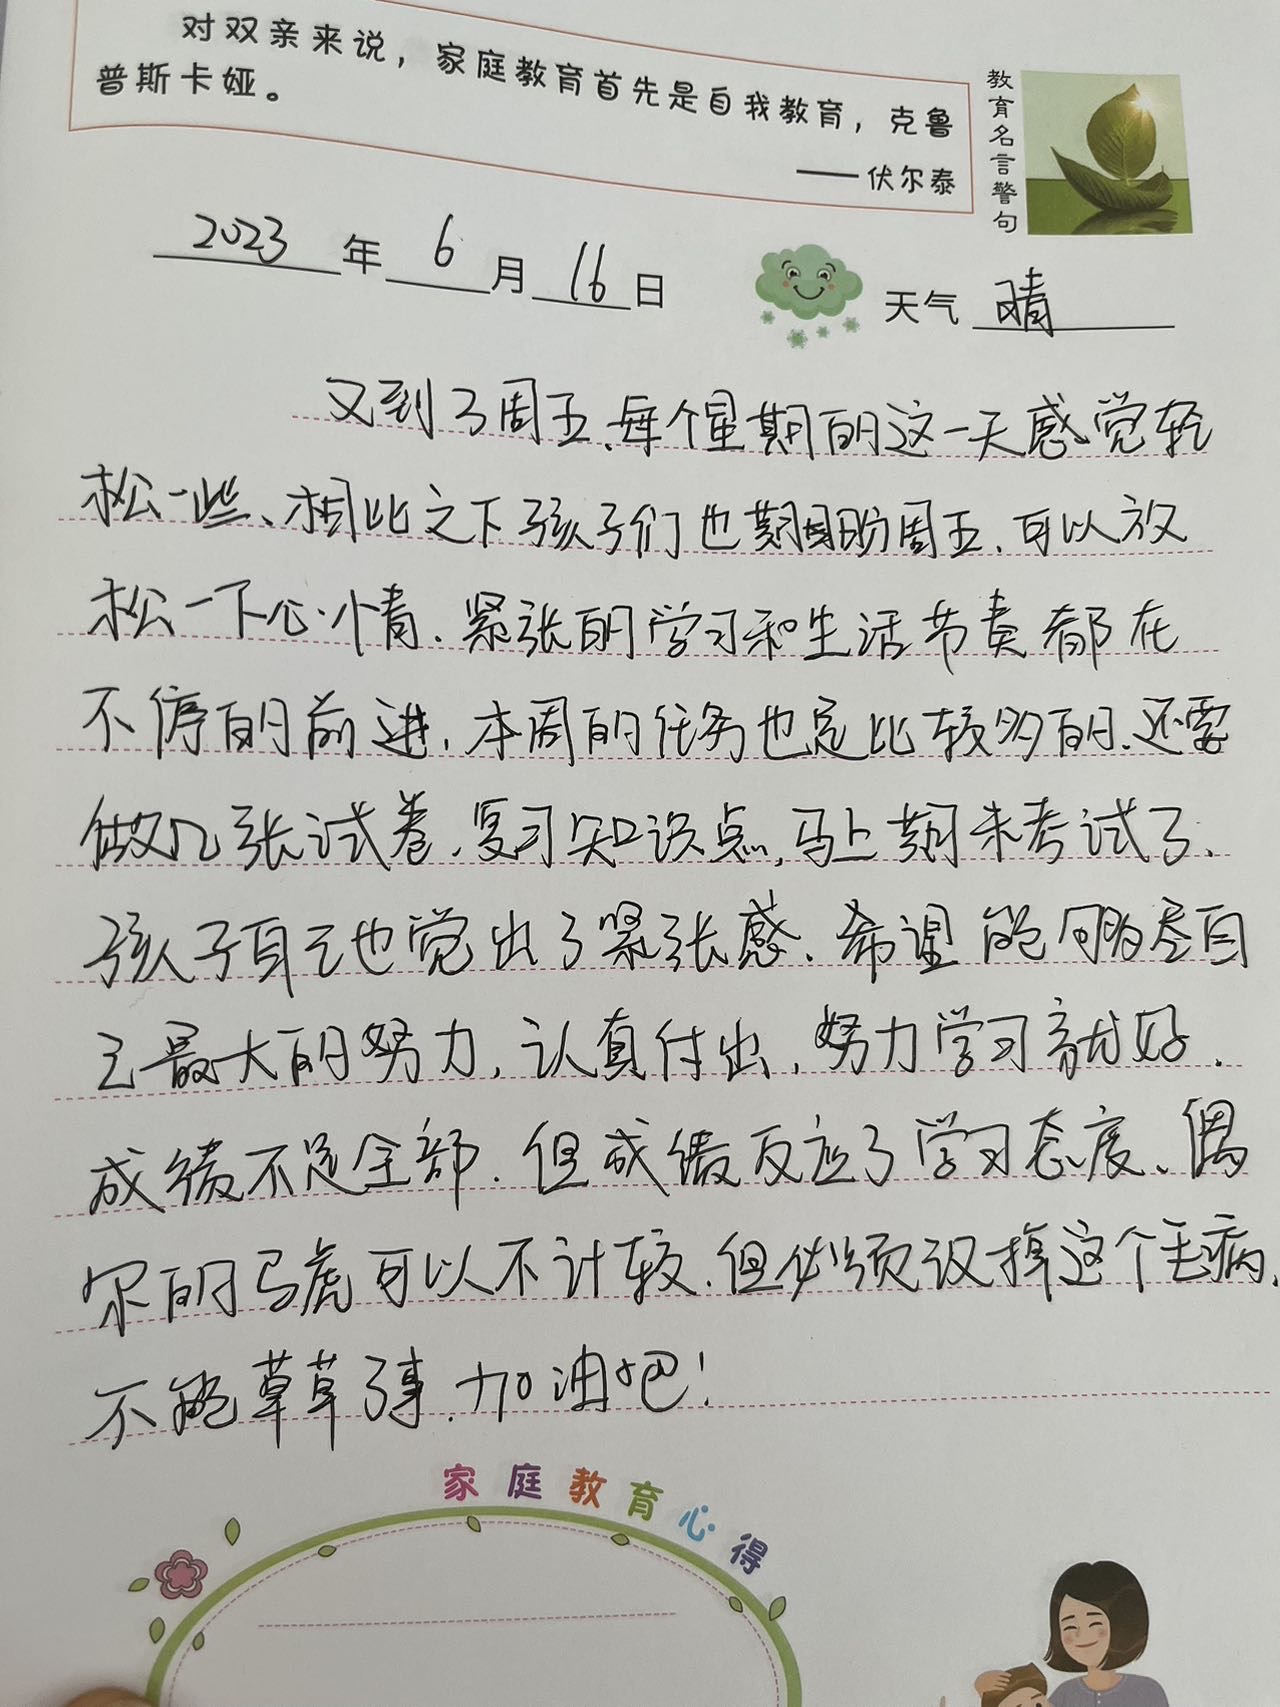 对双亲来说，家庭教育首先是自我教育，克鲁
普斯卡娅。
——伏尔泰
教育名言警句
2023年6月16日
天气 晴
又到了周五、每个星期的这一天感觉轻
松一些、相比之下孩子们也期盼周五、可以放
松一下心情.紧张的学习和生活节奏都在
不停的前进,本周的任务也是比较多的、还要
做几张试卷.复习知识点,马上期末考试了、
孩子自己也觉出了紧张感、希望能尽自
己最大的努力,认真付出,努力学习就好.
成绩不是全部.但成绩反应了学习态度、偶
尔的马虎可以不计较.但必须改掉这个毛病、
不能草草了事.加油吧!
家庭教育心得